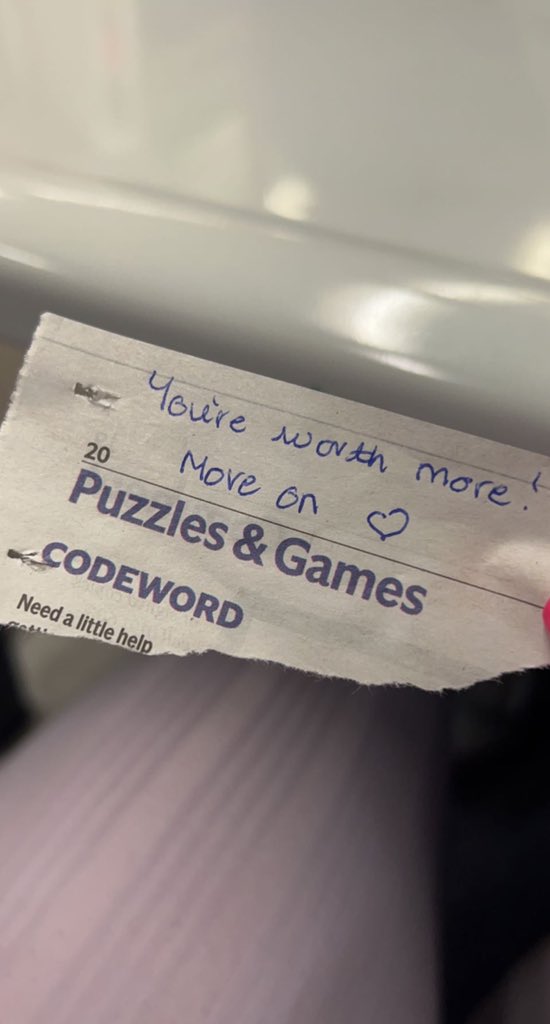 You're worth more!
Move on ♡
20
Puzzles & Games
CODEWORD
Need a little help